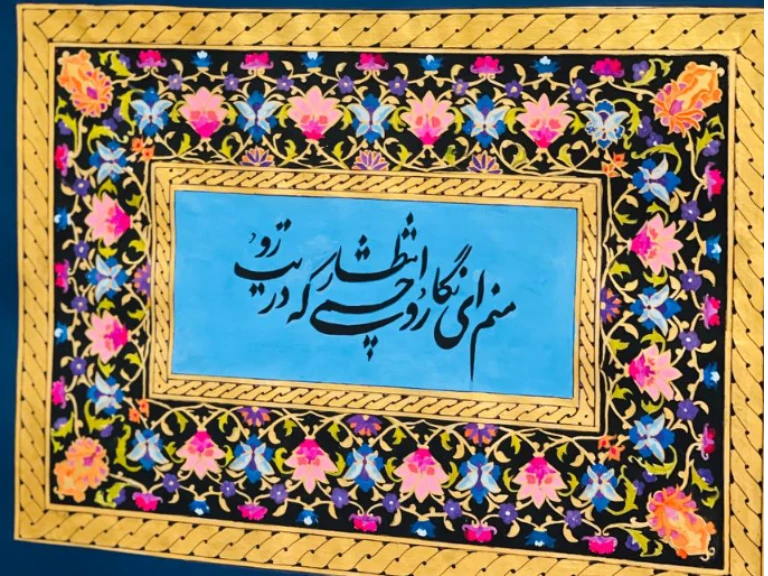 منم ای نگار و چشمی که در انتظار رویت